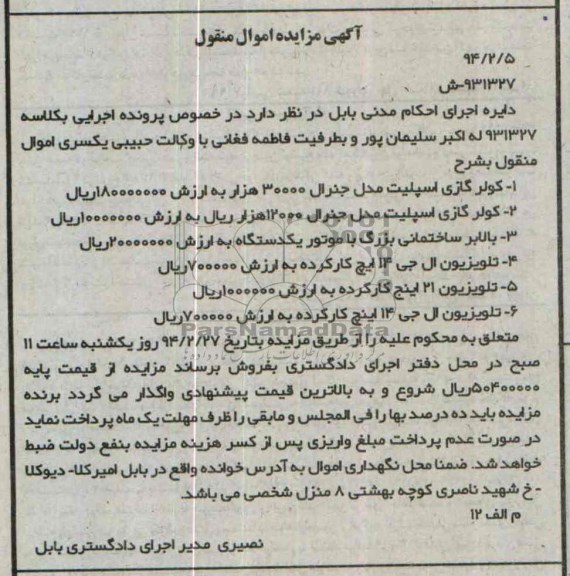 آگهی مزایده اموال منقول
۹۴/۲/۵
۹۳۱۳۲۷-ش
دایره اجرای احکام مدنی بابل در نظر دارد در خصوص پرونده اجرایی بکلاسه
۹۳۱۳۲۷ له اکبر سلیمان پور و بطرفیت فاطمه فغانی با وکالت حبیبی یکسری اموال
منقول بشرح
۱- کولر گازی اسپلیت مدل جنرال ۳۰۰۰۰ هزار به ارزش ۱۸۰۰۰۰۰۰۰ریال
۲- کولر گازی اسپلیت مدل جنرال ۱۲۰۰۰هزار ریال به ارزش ۱۰۰۰۰۰۰۰ریال
۳- بالابر ساختمانی بزرگ با موتور یکدستگاه به ارزش ۲۰۰۰۰۰۰۰ریال
۴- تلویزیون ال جی ۱۴ ایچ کارکرده به ارزش ۷۰۰۰۰۰ریال
۵- تلویزیون ۲۱ اینچ کارکرده به ارزش ۱۰۰۰۰۰۰ریال
۶- تلویزیون ال جی ۱۴ اینچ کارکرده به ارزش ۷۰۰۰۰۰ریال
ParsNamadData
متعلق به محکوم علیه را از طریق مزایده بتاریخ ۹۴/۲/۲۷ روز یکشنبه ساعت ۱۱
صبح در محل دفتر اجرای دادگستری بفروش برساند مزایده از قیمت پایه
۵۰۴۰۰۰۰۰ریال شروع و به بالاترین قیمت پیشنهادی واگذار می گردد برنده
مزایده باید ده درصد بها را فی المجلس و مابقی را ظرف مهلت یک ماه پرداخت نماید
در صورت عدم پرداخت مبلغ واریزی پس از کسر هزینه مزایده بنفع دولت ضبط
خواهد شد. ضمنا محل نگهداری اموال به آدرس خوانده واقع در بابل امیرکلا- دیوکلا
-خ شهید ناصری کوچه بهشتی ۸ منزل شخصی می باشد.
م الف ۱۲
نصیری مدیر اجرای دادگستری بابل